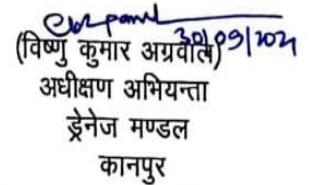 30/09/2021
(विष्णु कुमार अग्रवाल)
अधीक्षण अभियन्ता
ड्रेनेज मण्डल
कानपुर